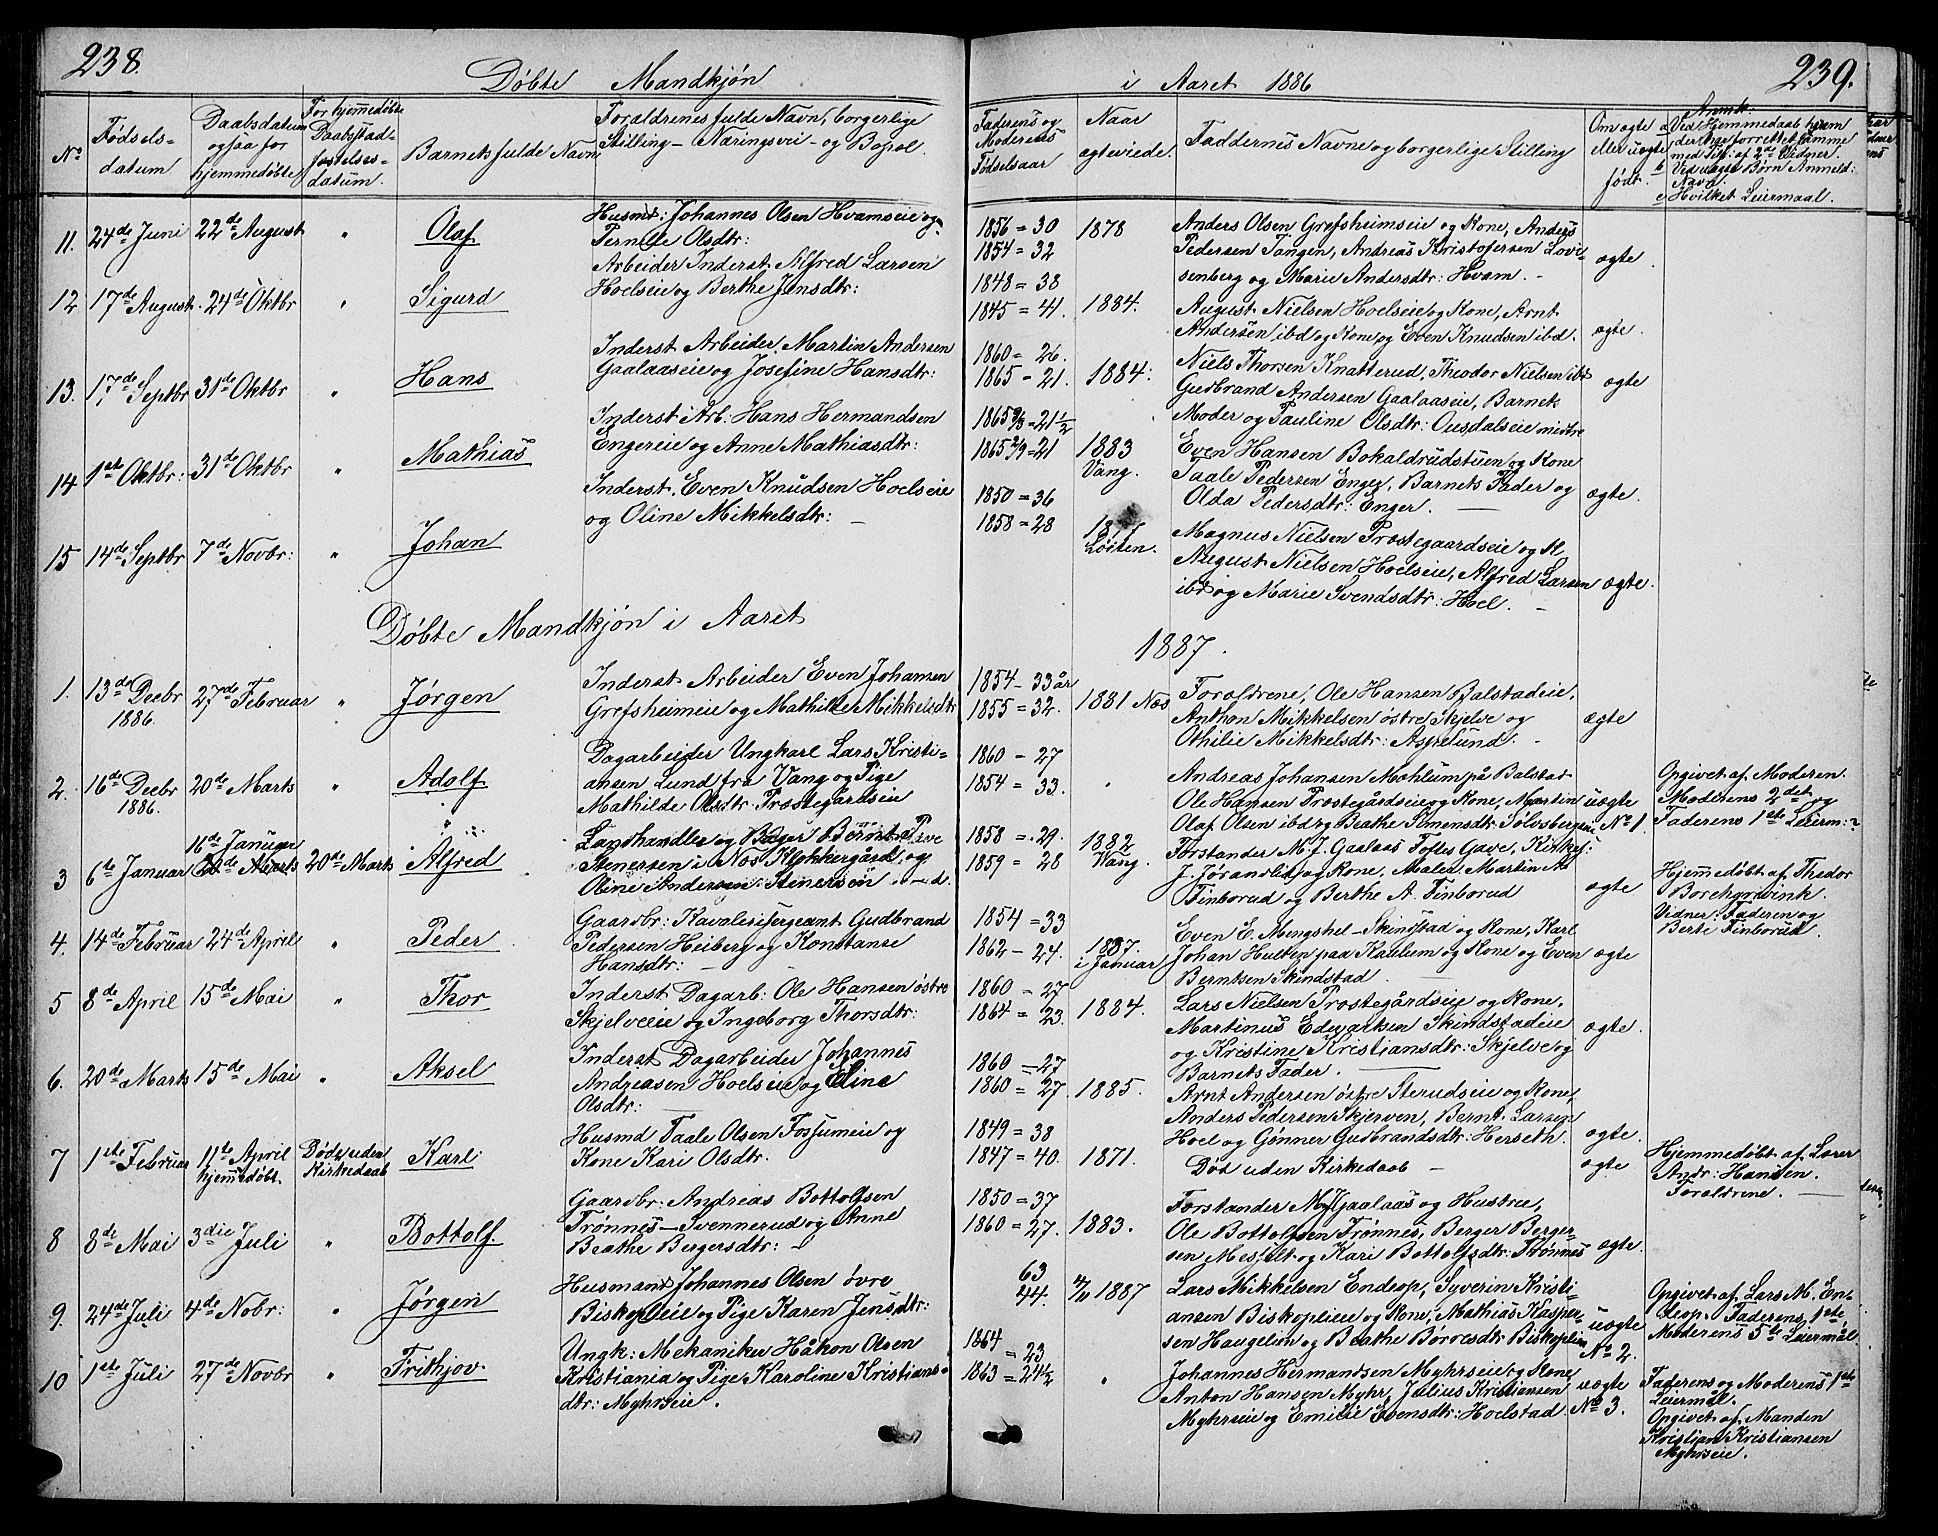 238.
Døbte Mandkjøn
No
Fødsels-
datum
Daabsdatum
ogsaa for
hjemmedøbte
For hjemmedøbte
Daabsstad-
fæstelses-
datum.
Barnets fulde Navn
Forældrenes fulde Navn, borgerlige
Stilling - Næringsvei - og Bopæl.
11. 24de Juni 22de August " Olaf
Husmd: Johannes Olsen Hvamseie og
Pernille Olsdtr:
12 17de August. 24de Oktbr " Sigurd
Arbeider Inderst Alfred Larsen
Hoelseie og Berthe Jensdtr:
13. 17de Septbr 31de Oktbr " Hans
Inderst Arbeider Martin Andersen
Gaalaaseie og Josefine Hansdtr:
14 1ste Oktbr: 31de Oktbr " Mathias
Inderst i Arb. Hans Hermandsen
Engereie og Anne Mathiasdtr:
15 14de Septbr 7de Novbr: " Johan
Inderst. Even Knudsen Hoelseie
og Oline Mikkelsdtr: -
Døbte Mandkjøn i Aaret
1. 13de Decbr 1886. 27de Februar " Jørgen
Inderst Arbeider Even Johansen
Grefsheimeie og Mathilde Mikkelsdtr
2. 16de Decbr 1886. 20de Marts " Adolf
Dagarbeider Ungkarl Lars Kristi-
ansen Lund fra Vang og Pige
Mathilde Olsdtr. Præstegårdseie
3 6te Januar 16de Januar 20de Marts Alfred
Landhandler og Bager Bernt
Stenersen i Nes Klokkergård og
Oline Andersen Stenersen
4. 14de Februar 24de April " Peder
Gaardbr: Kavalerisergeant Gudbrand
Pedersen Heiberg og Konstanse
Hansdtr: -
5 8de April 15de Mai " Thor
Inderst Dagarb: Ole Hansen østre
Skjelveeie og Ingeborg Thorsdtr:
6. 20de Marts 15de Mai " Aksel
Inderst Dagarbeider Johannes
Andreasen Hoelseie og Eline
Olsdtr: -
7 1ste Februar 11te April hjemmedøbt. Døde uden Kirkedaab Karl
Husmd Taale Olsen Fossumeie og
Kone Kari Olsdtr.
8 8de Mai 3die Juli " Bottolf.
Gaardbr: Andreas Bottolfsen
Trønnes - Svennerud og Anne
Beathe Bergersdtr: -
9. 24de Juli 4de Nobr: " Jørgen
Husmand Johannes Olsen øvre
Biskoplieie og Pige Karen Jensdtr:
10 1ste Juli 27de Novbr " Frithjov.
Ungk: Mekaniker Håkon Olsen
Kristiania og Pige Karoline Kristians-
dtr: Myhrseie.
239.
i Aaret 1886
Faderens og
Moderens
Fødselsaar
Naar
ægteviede.
Faddernes Navne og borgerlige Stilling
Om ægte
eller uægte
født.
Anmk.
a Ved Hjemmedaab hvem
der har forrettet samme
med Tilf: af 2de Vidner.
b Ved uægte Børn Anmeld:
Navn.
c Hvilket Leiermaal.
1856 = 30
1854 = 32
1878
Anders Olsen Grefsheimseie og Kone, Anders
Pedersen Tangen, Andreas Kristofersen Lovi-
senberg og Marie Andersdtr: Hvam. -
ægte.
1848 = 38
1845 = 41.
1884.
August Nielsen Hoelseie og Kone, Arnt
Andersen ibd og Kone og Even Knudsen ibd.
ægte.
1860 = 26.
1865 = 21.
1884.
Niels Thorsen Knatterud, Theodor Nielsen ibd
Gudbrand Andersen Gaalaaseie, Barnets
Moder og Pauline Olsdtr: Ousdalseie nedre
ægte
1865 = 21½
1865 = 21
1883
Vang.
Even Hansen Bokaldrudstuen og Kone
Taale Pedersen Enger, Barnets Fader og
Olda Pedersdtr: Enger. -
ægte.
1850 = 36
1858 = 28
Løiten.
Magnus Nielsen Præstegaardseie og K.
August Nielsen Hoelseie, Alfred Larsen
ibd og Marie Svendsdtr: Hoel. -
ægte.
1887.
1854 - 33 år
1855 = 32.
1881 Næs
Forældrene, Ole Hansen Balstadeie,
Anthon Mikkelsen østre Skjelve og
Othilie Mikkelsdtr: Aspelund. -
ægte
1860 - 27
1854 = 33.
"
Andreas Johansen Mæhlum på Balstad
Ole Hansen Præstegårdseie og Kone, Martin
Olaf Olsen ibd og Beathe Simensdtr: Sølvsbergeie
uægte
No 1.
Opgivet af Moderen.
Moderens 2det og
Faderens 1ste Leierm:
1858 = 29.
1859 = 28
1882
Vang.
Forstander M. J. Gaalaas Toftes Gave, Kirkes:
J. Jørandli og Kone, Maler Martin A.
Finborud og Berthe A. Finborud
ægte
Hjemmedøbt af Thedor
Borchgrevink.
Vidner: Faderen og
Berte Finborud.
1854 = 33
1862 - 24.
1887.
i Januar
Even E. Mengshol - Skindstad og Kone, Karl
Johan Hulten paa Kaldum og Kone og Even
Berntsen Skindstad.
ægte
1860 = 27
1864 = 23.
1884.
Lars Nielsen Præstegårdseie og Kone,
Martinus Edvartsen Skindstadeie
og Kristine Kristiansdtr: Skjelve og
Barnets Fader. -
ægte.
1860 = 27
1860 = 27.
1885.
Arnt Andersen østre Sterudseie og Kone,
Anders Pedersen Skjerven, Bernt Larsen
Hoel og Gønner Gudbrandsdtr: Herseth.
ægte.
1849 = 38
1847 = 40.
1871.
Død uden Kirkedaab -
ægte
Hjemmedøbt af Lærer
Andr: Hansen.
Forældrene. -
1850 = 37
1860 = 27.
1883.
Forstander M. J. Gaalaas og Hustru,
Ole Bottolfsen Trønnes, Berger Berger-
sen Mesfelt og Kari Bottolfsdtr: Trønnes
ægte.
63
44.
1887
Lars Mikkelsen Endsop, Syverin Kristi-
ansen Biskoplieie og Kone, Mathias Kasper-
sen Haugelien og Beathe Børresdtr: Biskoplien
uægte
No 2.
Opgivet af Lars M. En-
dsop. Faderens 1ste,
Moderens 5te Leiermål
1864 = 23
1863 = 24½
"
Johannes Hermandsen Myhrseie og Kone
Anton Hansen Myhr, Julius Kristiansen
Myhrseie og Emilie Evensdtr: Hoelstad.
uægte
No 3.
Faderens og Moderens 1ste
Leiermål.
Opgivet af Manden
Kristian Kristiansen
Myhrseie.